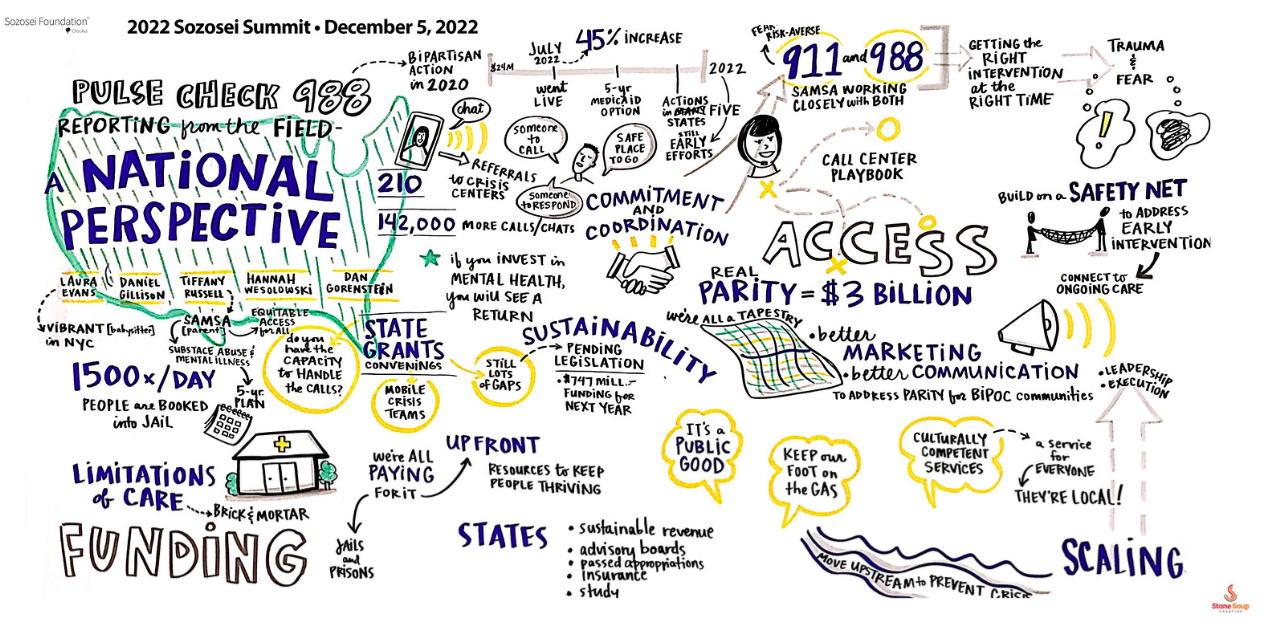 Sozosei Foundation™
Otsuka
2022 Sozosei Summit • December 5, 2022
PULSE CHECK 988
REPORTING from the FIELD-
A NATIONAL
PERSPECTIVE
LAURA
EVANS
DANIEL
GILLISON
TIFFANY
RUSSELL
HANNAH
WESOLOWSKI
DAN
GORENSTEIN
VIBRANT [babysitter]
in NYC
SAMSA
[parent]
EQUITABLE
ACCESS
for ALL
SUBSTACE ABUSE &
MENTAL ILLNESS
5-yr.
PLAN
1500x/DAY
PEOPLE are BOOKED
into JAIL
LIMITATIONS
of CARE
BRICK & MORTAR
FUNDING
BIPARTISAN
ACTION
in 2020
$24M
JULY
2022
45% INCREASE
2022
went
LIVE
5-yr
MEDICAID
OPTION
ACTIONS
in MANY FIVE
STATES
STILL
EARLY
EFFORTS
chat
REFERRALS
to CRISIS
CENTERS
someone
to
CALL
SAFE
PLACE
TO GO
someone
to RESPOND
210
142,000 MORE CALLS/CHATS
if you INVEST in
MENTAL HEALTH,
you WILL SEE A
RETURN
COMMITMENT
AND
COORDINATION
do you
have the
CAPACITY
to HANDLE
the CALLS?
STATE
GRANTS
CONVENINGS
MOBILE
CRISIS
TEAMS
STILL
LOTS
of GAPS
SUSTAINABILITY
PENDING
LEGISLATION
• $747 MILL.-
FUNDING for
NEXT YEAR
we're ALL
PAYING
FOR it
UPFRONT
RESOURCES to KEEP
PEOPLE THRIVING
JAILS
and
PRISONS
STATES
• sustainable revenue
• advisory boards
• passed appropriations
• insurance
• study
FEAR
RISK-AVERSE
911 and 988
SAMSA WORKING
CLOSELY with BOTH
GETTING the
RIGHT
INTERVENTION
at the
RIGHT TIME
TRAUMA
&
FEAR
!
CALL CENTER
PLAYBOOK
ACCESS
BUILD on a SAFETY NET
to ADDRESS
EARLY
INTERVENTION
CONNECT to
ONGOING CARE
REAL
PARITY = $3 BILLION
we're ALL a TAPESTRY
• better
MARKETING
• better COMMUNICATION
TO ADDRESS PARITY for BIPOC communities
• LEADERSHIP
• EXECUTION
IT'S a
PUBLIC
GOOD
KEEP our
FOOT on
the GAS
CULTURALLY
COMPETENT
SERVICES
a service
for
EVERYONE
THEY'RE LOCAL!
MOVE UPSTREAM to PREVENT CRISIS
SCALING
Stone Soup
CREATIVE